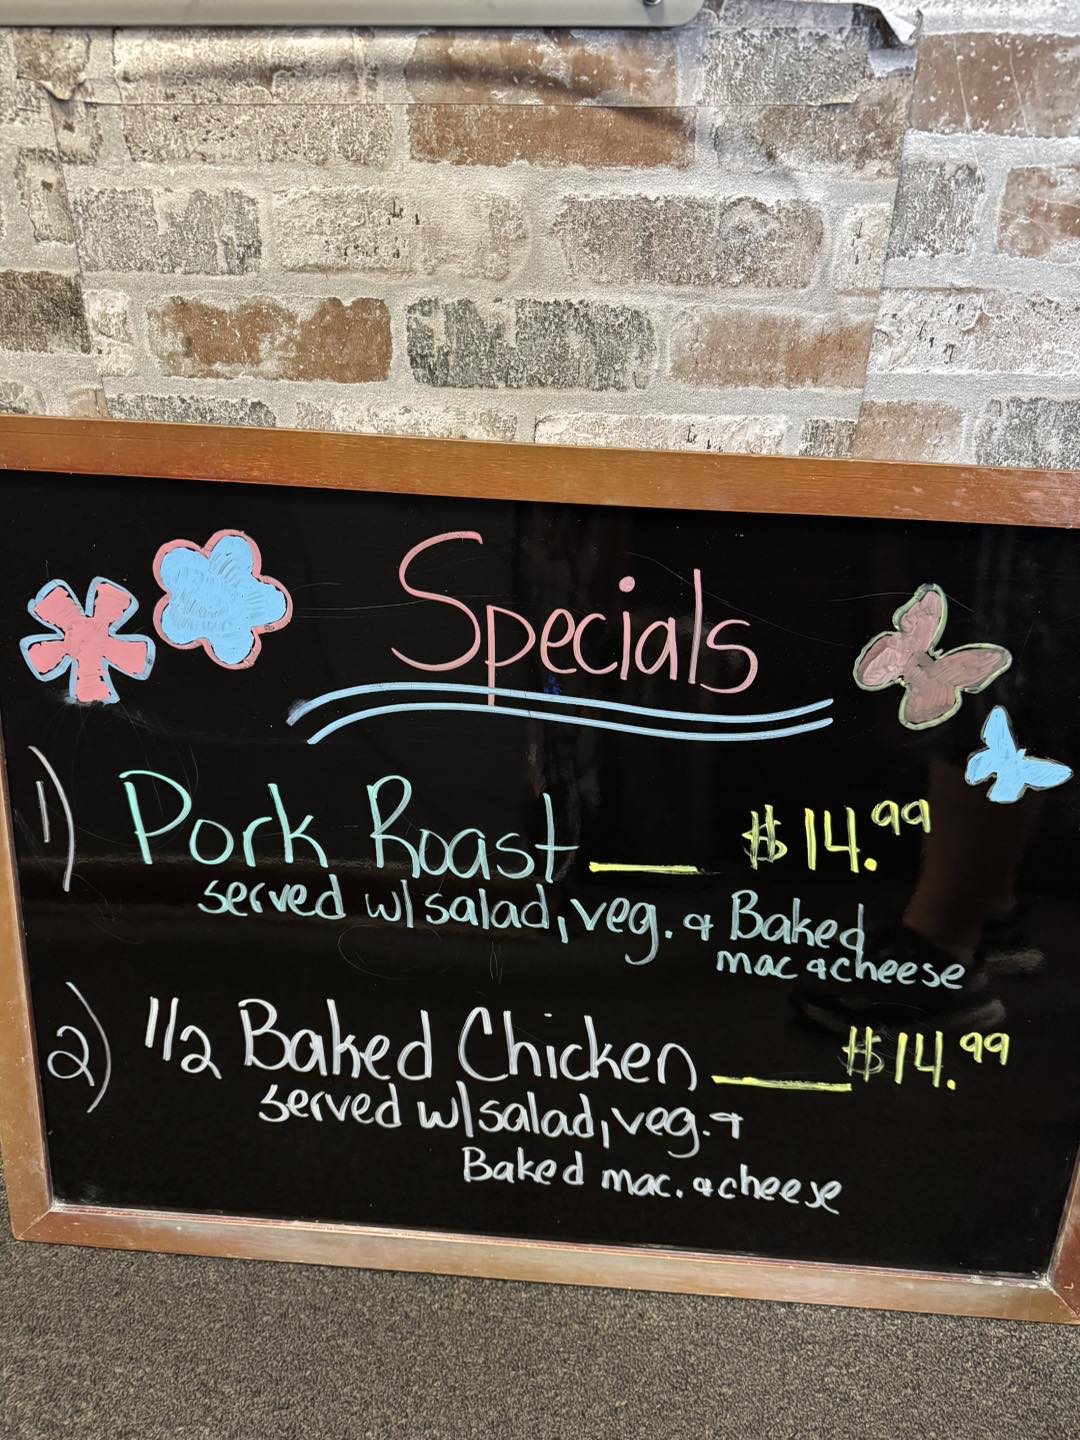 Specials
1) Pork Roast ___ $14.99
served w/ salad, veg. & Baked
mac & cheese
2) 1/2 Baked Chicken ___ $14.99
served w/ salad, veg. &
Baked mac. & cheese